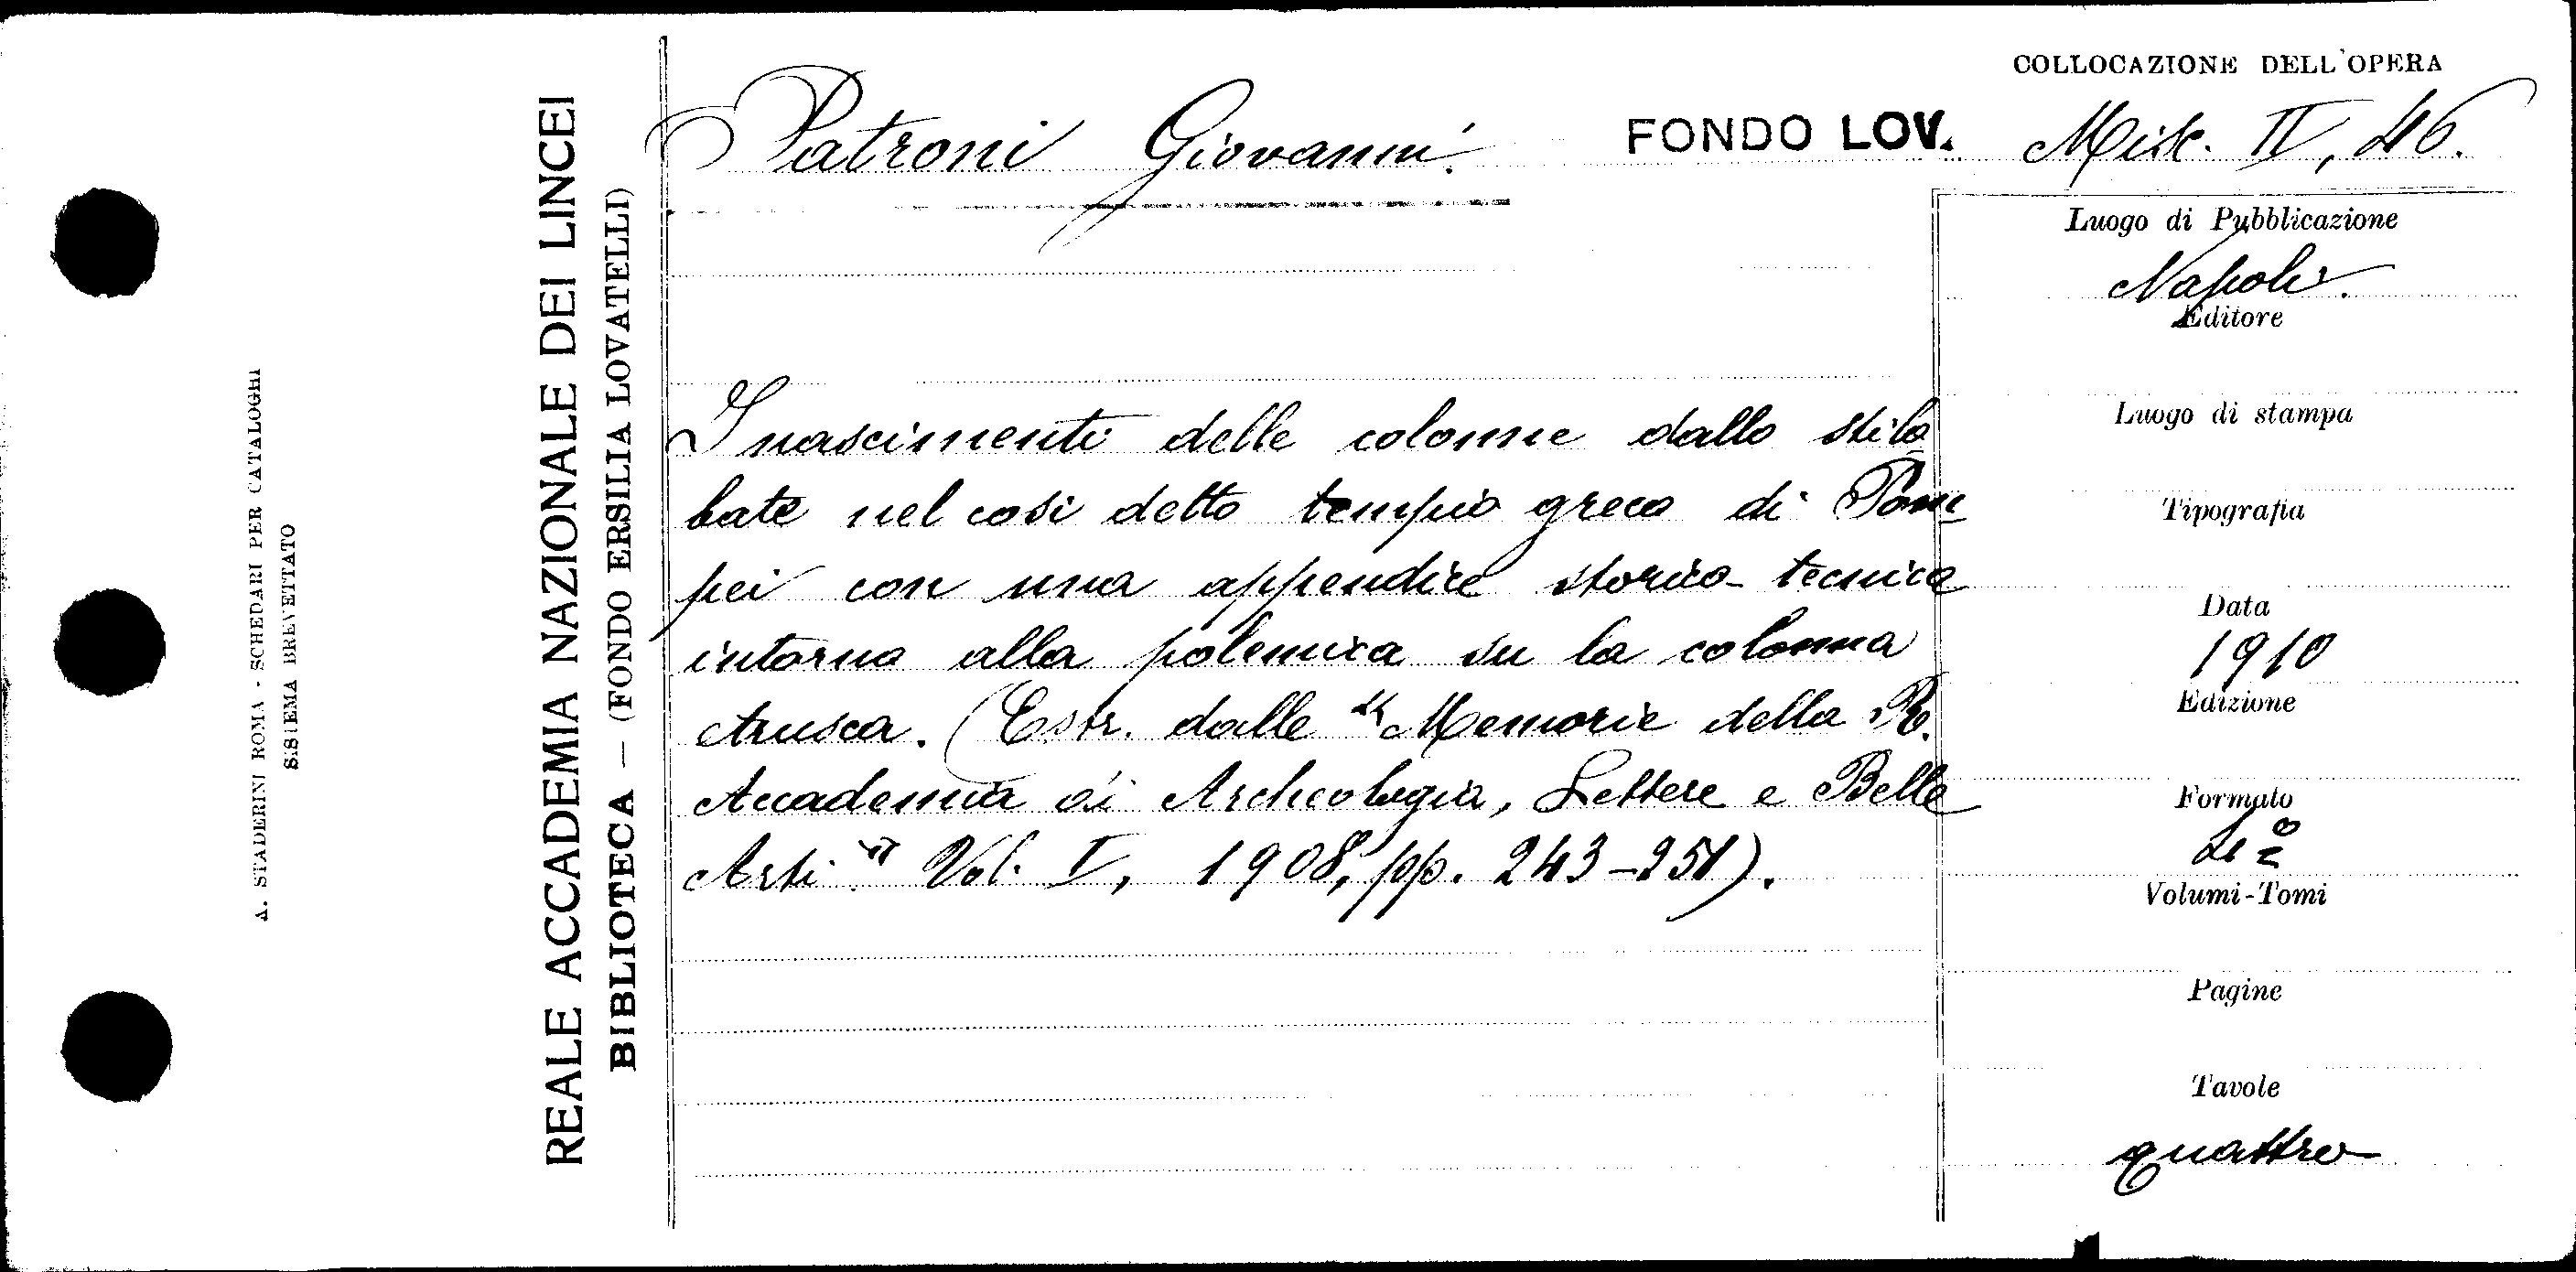 COLLOCAZIONE DELL'OPERA
Patroni Giovanni.
FONDO LOV. Misc. IV, 46.
I nascimenti delle colonne dallo stilo
bate nel così detto tempio greco di Pom-
pei con una appendice storico-tecnica
intorno alla polemica su la colonna
etrusca. (Estr. dalle "Memorie della R.
Accademia di Archeologia, Lettere e Belle
Arti" Vol. I, 1908, pp. 243-251).
Luogo di Pubblicazione
Napoli.
Editore
Luogo di stampa
Tipografia
Data
1910
Edizione
Formato
4º
Volumi-Tomi
Pagine
Tavole
quattro
REALE ACCADEMIA NAZIONALE DEI LINCEI
BIBLIOTECA — (FONDO ERSILIA LOVATELLI)
A. STADERINI ROMA - SCHEDARI PER CATALOGHI
SISTEMA BREVETTATO